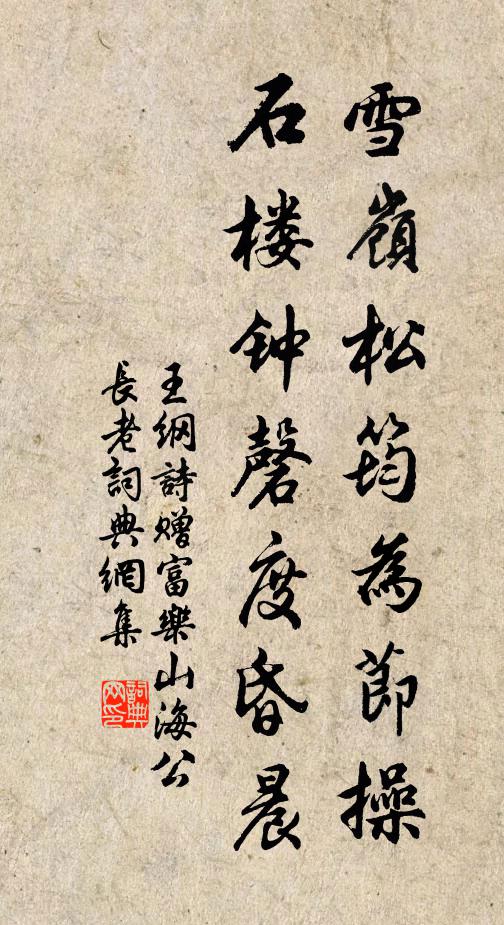 雪嶺松筠為節操
石楼钟磬度昏晨
王綱詩贈富樂山海公
長老詞典網集
詞典
网印